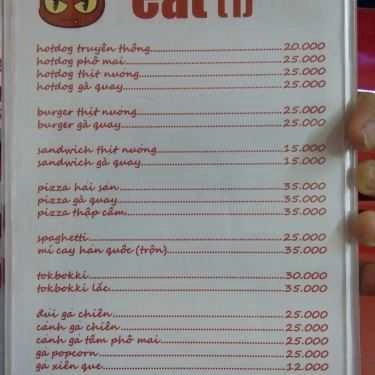 eat
hotdog truyền thống 20.000
hotdog phô mai 25.000
hotdog thịt nướng 25.000
hotdog gà quay 25.000
burger thịt nướng 25.000
burger gà quay 25.000
sandwich thịt nướng 15.000
sandwich gà quay 15.000
pizza hải sản 35.000
pizza gà quay 35.000
pizza thập cẩm 35.000
spaghetti 25.000
mì cay hàn quốc (trộn) 35.000
tokbokki 30.000
tokbokki lắc 35.000
đùi gà chiên 25.000
cánh gà chiên 25.000
cánh gà tẩm phô mai 25.000
gà popcorn 25.000
gà xiên que 12.000